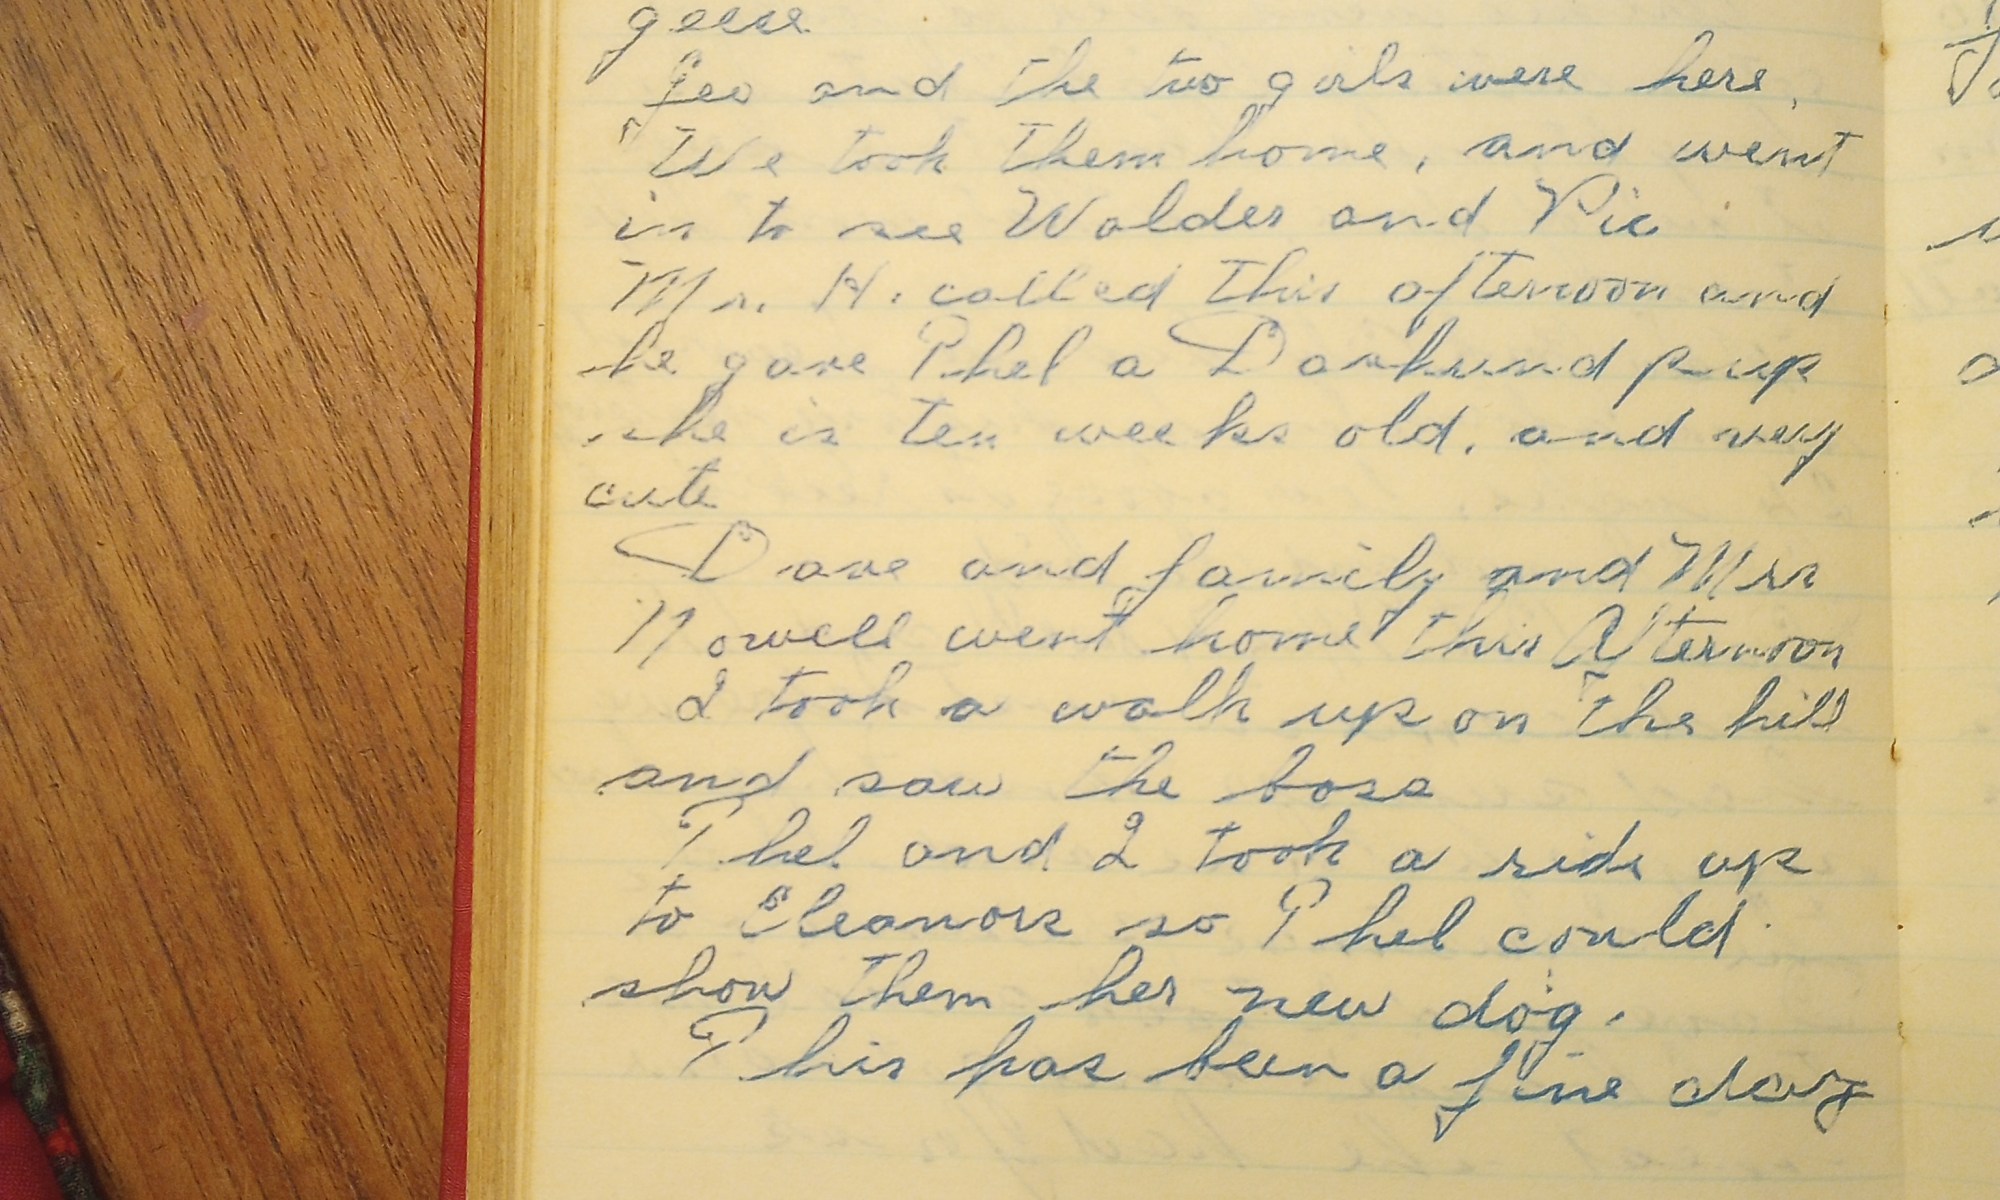 geese
Geo and the two girls were here.
We took them home, and went
in to see Walder and Vic
Mr. H. called this afternoon and
he gave Thel a Darkund pup
she is ten weeks old, and very
cute
Dave and family and Mrs
Nowell went home this Afternoon
I took a walk up on the hill
and saw the boss
Thel and I took a ride up
to Eleanors so Thel could
show them her new dog.
This has been a fine day